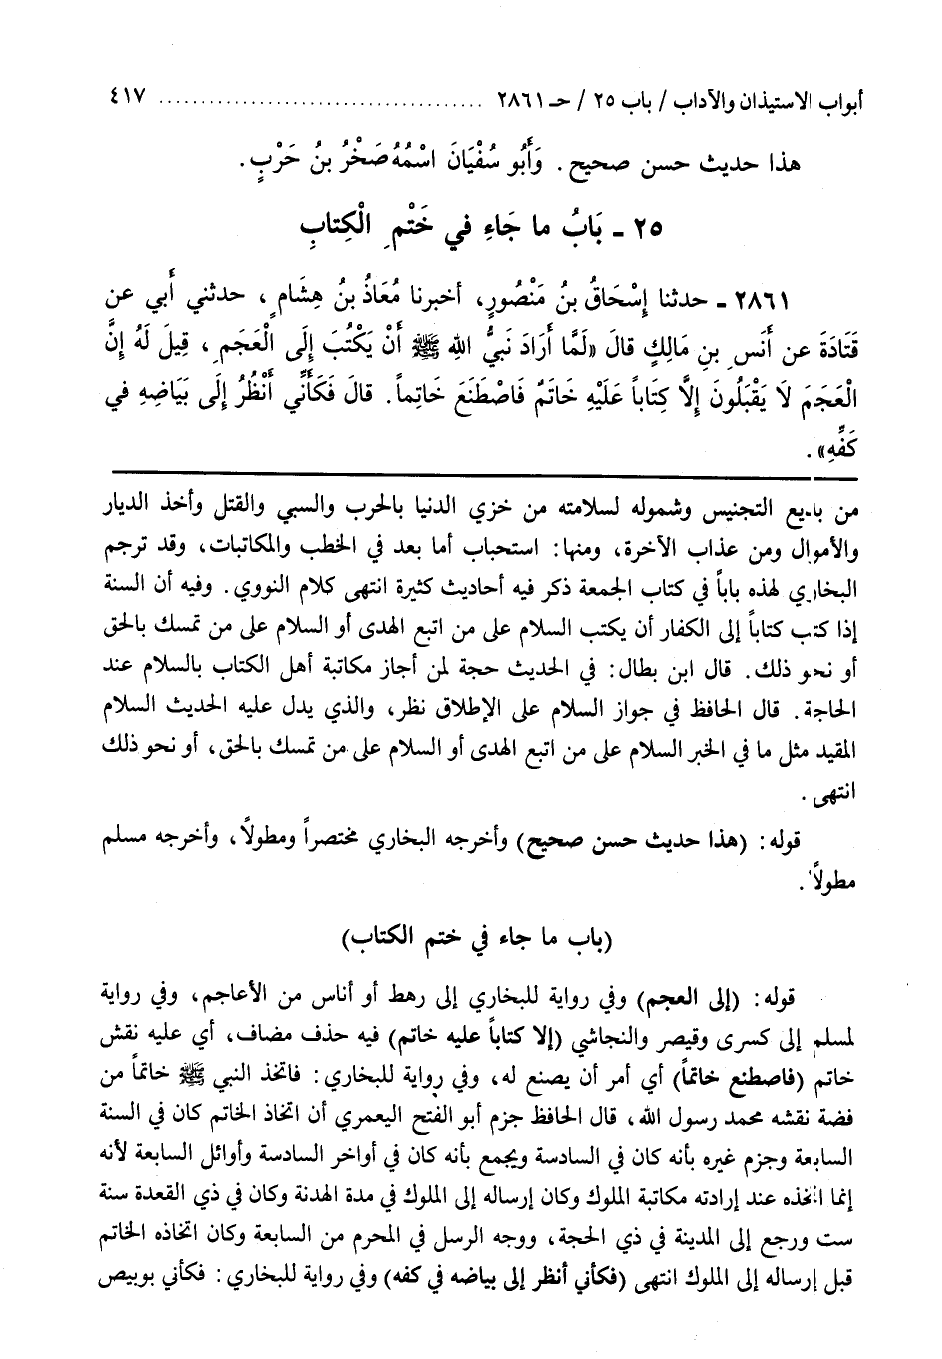 أبواب الاستيذان والآداب / باب ٢٥ / حـ ٢٨٦١ ..................................... ٤١٧
هذا حديث حسن صحيح. وَأَبُو سُفْيَانَ اسْمُهُ صَخْرُ بنُ حَرْبٍ.
٢٥ ـ بَابُ ما جَاءِ في خَتْمِ الْكِتابِ
٢٨٦١ ـ حدثنا إِسْحَاقُ بنُ مَنْصُورٍ، أخبرنا مُعَاذُ بنُ هِشَامٍ، حدثني أَبي عن
قَتَادَةَ عن أَنَسِ بنِ مَالِكٍ قالَ «لَمَّا أَرَادَ نَبيُّ اللهِ ﷺ أَنْ يَكْتُبَ إِلَى الْعَجَمِ، قِيلَ لَهُ إِنَّ
الْعَجَمَ لَا يَقْبَلُونَ إِلَّا كِتَاباً عَلَيْهِ خَاتَمٌ فَاصْطَنَعَ خَاتِماً. قالَ فَكَأَنِّي أَنْظُرُ إِلَى بَيَاضِهِ في
كَفِّهِ».
من بديع التجنيس وشموله لسلامته من خزي الدنيا بالحرب والسبي والقتل وأخذ الديار
والأموال ومن عذاب الآخرة، ومنها: استحباب أما بعد في الخطب والمكاتبات، وقد ترجم
البخاري لهذه باباً في كتاب الجمعة ذكر فيه أحاديث كثيرة انتهى كلام النووي. وفيه أن السنة
إذا كتب كتاباً إلى الكفار أن يكتب السلام على من اتبع الهدى أو السلام على من تمسك بالحق
أو نحو ذلك. قال ابن بطال: في الحديث حجة لمن أجاز مكاتبة أهل الكتاب بالسلام عند
الحاجة. قال الحافظ في جواز السلام على الإطلاق نظر، والذي يدل عليه الحديث السلام
المقيد مثل ما في الخبر السلام على من اتبع الهدى أو السلام على من تمسك بالحق، أو نحو ذلك
انتهى.
قوله: (هذا حديث حسن صحيح) وأخرجه البخاري مختصراً ومطولاً، وأخرجه مسلم
مطولاً.
(باب ما جاء في ختم الكتاب)
قوله: (إلى العجم) وفي رواية للبخاري إلى رهط أو أناس من الأعاجم، وفي رواية
لمسلم إلى كسرى وقيصر والنجاشي (إلا كتاباً عليه خاتم) فيه حذف مضاف، أي عليه نقش
خاتم (فاصطنع خاتماً) أي أمر أن يصنع له، وفي رواية للبخاري: فاتخذ النبي ﷺ خاتماً من
فضة نقشه محمد رسول الله، قال الحافظ جزم أبو الفتح اليعمري أن اتخاذ الخاتم كان في السنة
السابعة وجزم غيره بأنه كان في السادسة ويجمع بأنه كان في أواخر السادسة وأوائل السابعة لأنه
إنما اتخذه عند إرادته مكاتبة الملوك وكان إرساله إلى الملوك في مدة الهدنة وكان في ذي القعدة سنة
ست ورجع إلى المدينة في ذي الحجة، ووجه الرسل في المحرم من السابعة وكان اتخاذه الخاتم
قبل إرساله إلى الملوك انتهى (فكأني أنظر إلى بياضه في كفه) وفي رواية للبخاري: فكأني بوبيص